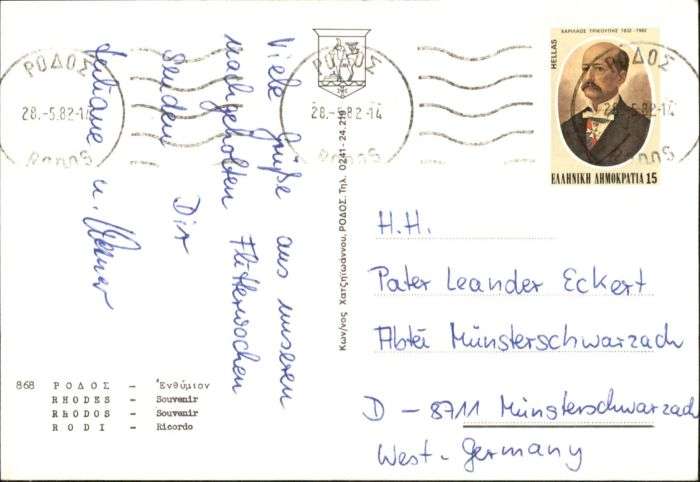 Viele Grüße aus unseren
nachgeholten Flitterwochen
Senden Dir
u.
ΡΟΔΟΣ
28.-5.82-14
RODOS
ΡΟΔΟΣ
28.-5.82-14
ΡΟΔΟΣ
28.-5.82-14
RODOS
ΧΑΡΙΛΑΟΣ ΤΡΙΚΟΥΠΗΣ 1832-1982
HELLAS
ΕΛΛΗΝΙΚΗ ΔΗΜΟΚΡΑΤΙΑ 15
Κων/νος Χατζηϊωάννου, ΡΟΔΟΣ. Τηλ. 0241-24.219
H.H.
Pater Leander Eckert
Abtei Münsterschwarzach
D - 8711 Münsterschwarzach
West-Germany
868 ΡΟΔΟΣ - Ἐνθύμιον
RHODES - Souvenir
RHODOS - Souvenir
RODI - Ricordo